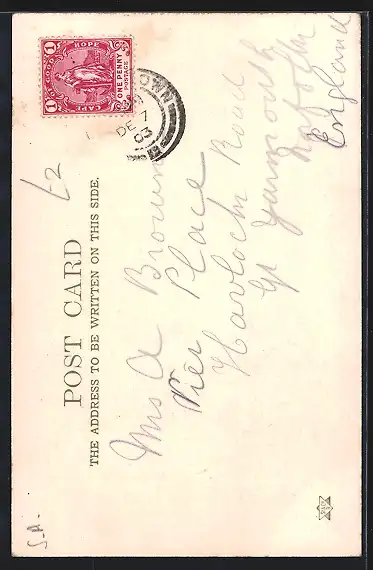 CAPE OF GOOD HOPE
1
1
ONE PENNY
POSTAGE
OWN
DE 7
03
£2
POST CARD
THE ADDRESS TO BE WRITTEN ON THIS SIDE.
Mrs A Brown
Pier Place
Havelock Road
Gt Yarmouth
England
S.A.